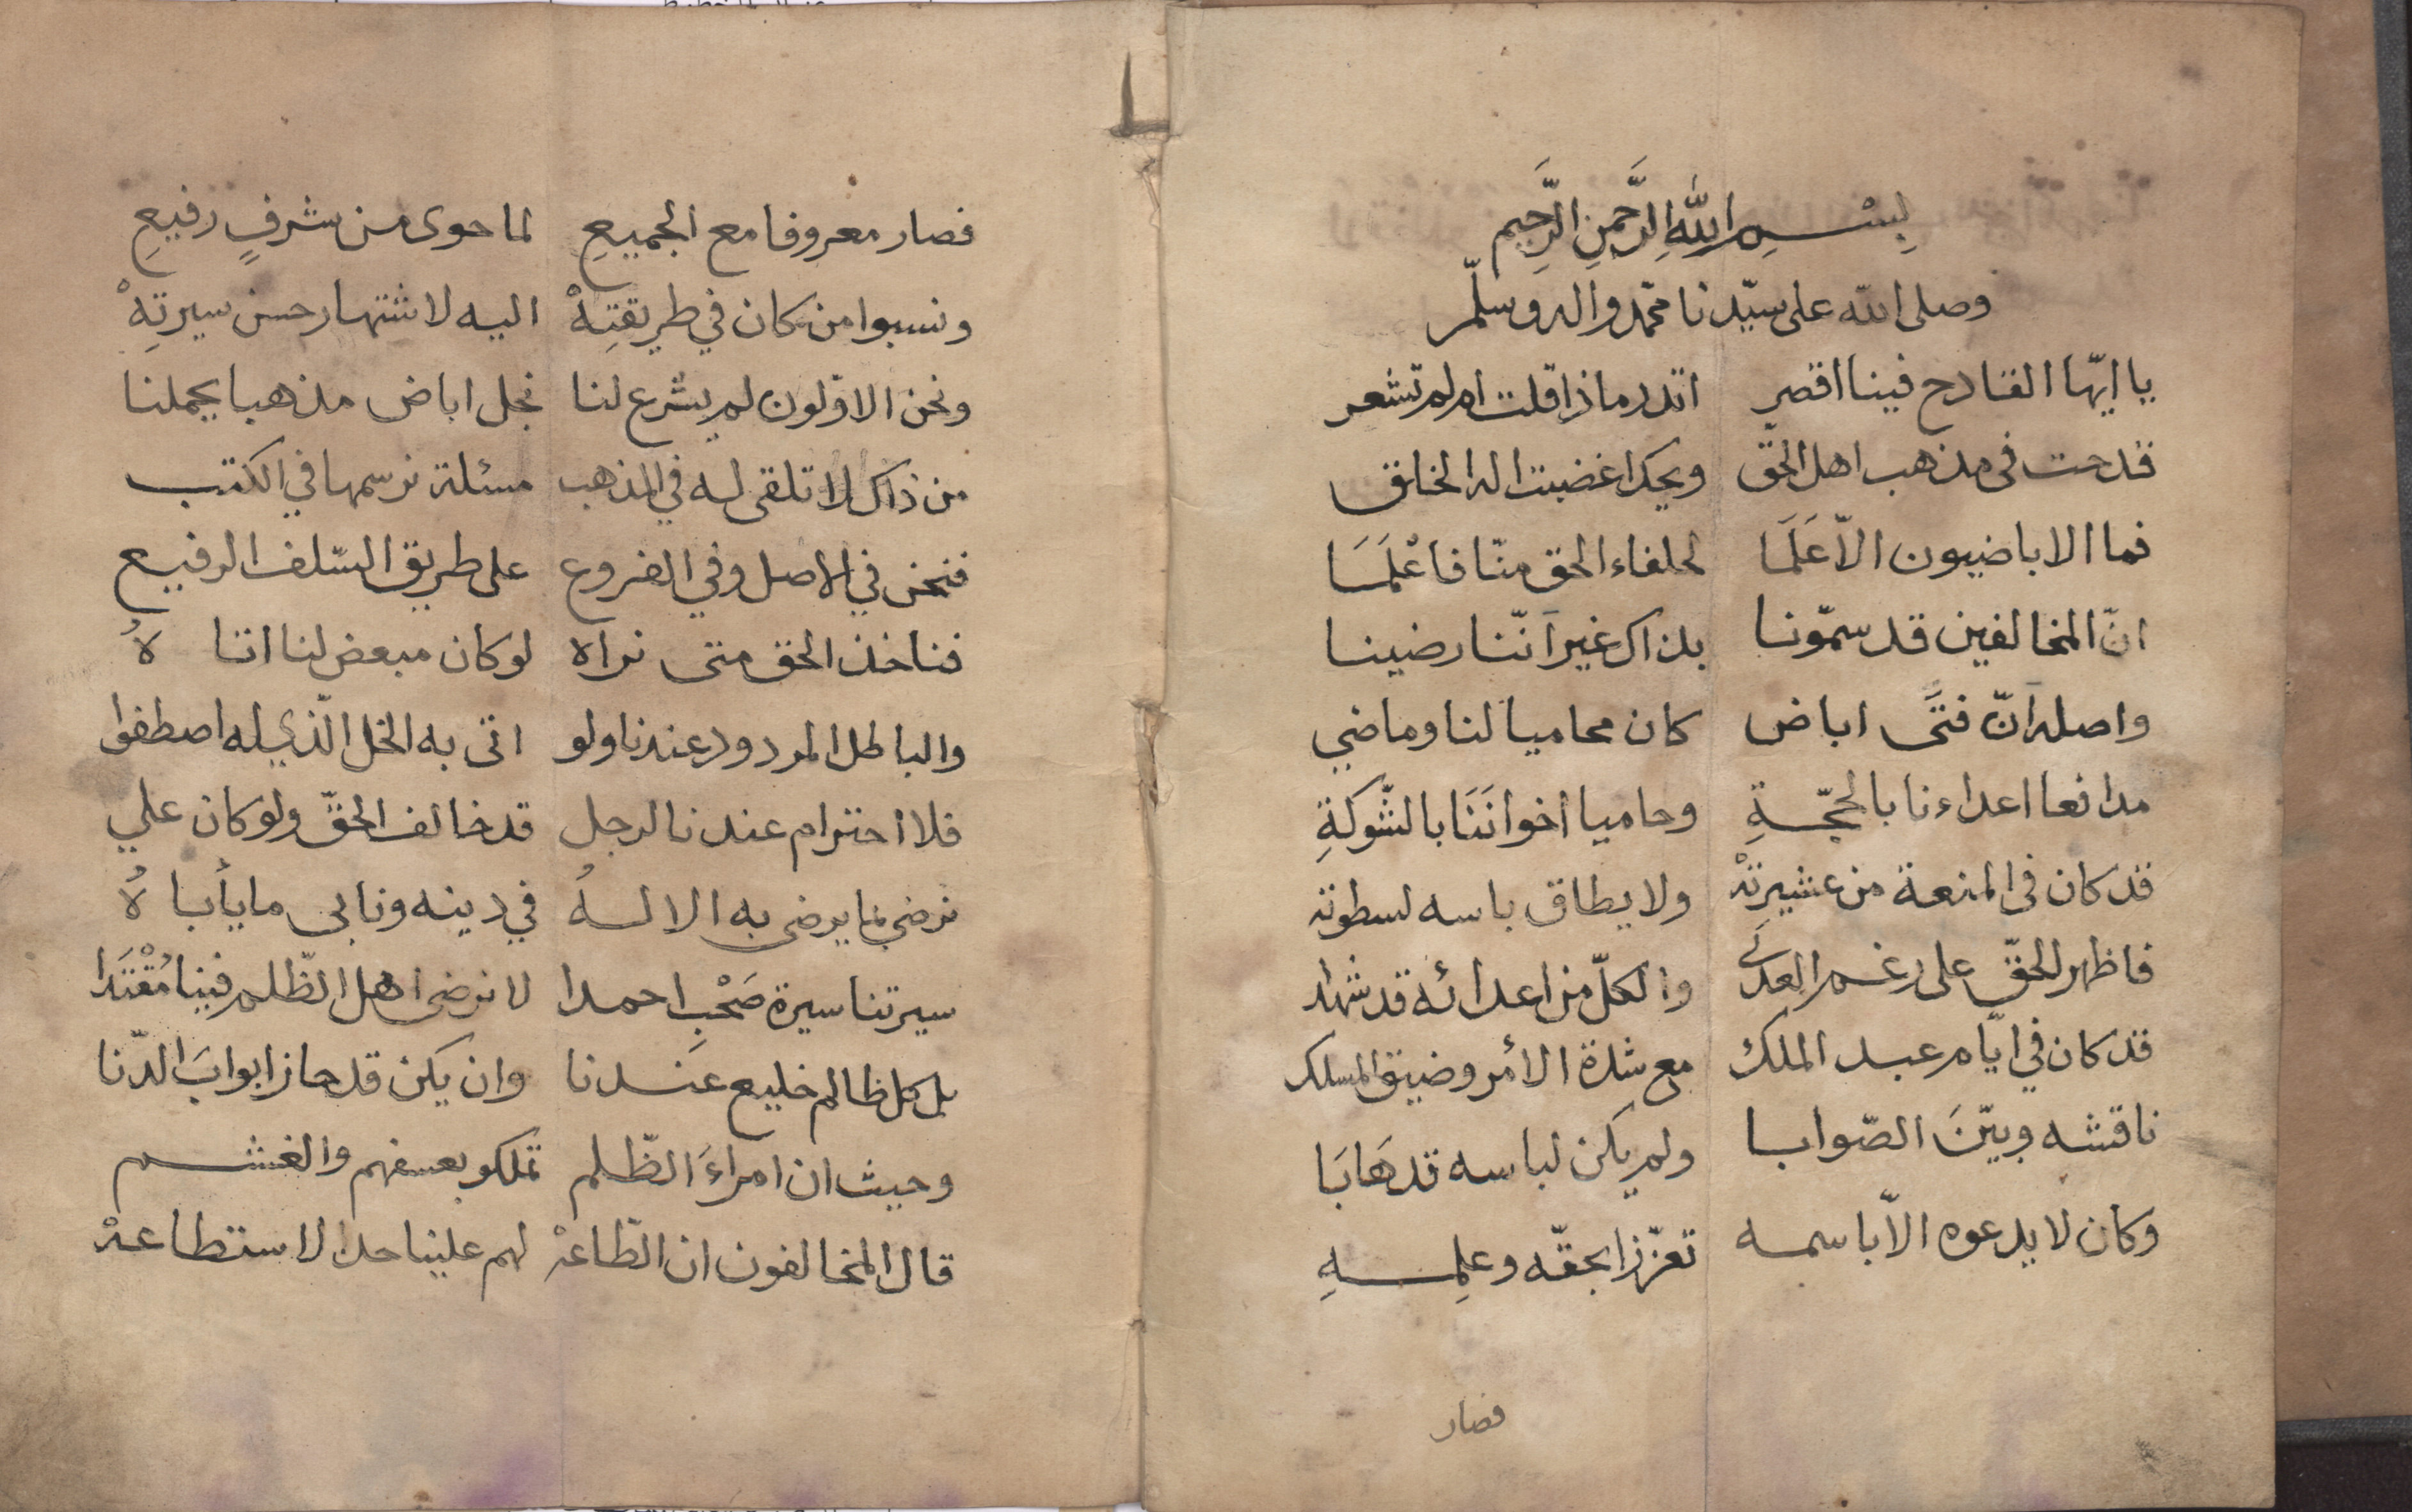 بِسْمِ اللهِ الرَّحْمنِ الرَّحِيم
وصلى الله على سيّدنا محمّد واله وسلّم
يا ايّها القادح فينا اقصر اتدر ماذا قلت ام لم تشعر
قدحت في مذهب اهل الحقّ ويحك اغضبت اله الخلق
فما الاباضيون الاّ عَلَمَا لحلفاء الحق منّا فاعْلَمَا
انّ المخالفين قد سمّونا بذاك غير اَنّنا رضينا
واصله اَنّ فتَى اباض كان محاميا لنا وماضي
مدافعا اعداءنا بالحجّةِ وحاميا اخوانَنَا بالشّوكةِ
قد كان في المنعة من عشيرتهْ ولا يطاق باسه لسطوته
فاظهر الحقّ على رغم العدَى والكلّ من اعدائه قد شهدا
قد كان في ايّام عبد الملك مع شدة الأمر وضيق المسلك
ناقشه وبيّنَ الصّوابا ولم يكن لباسه قد هَابَا
وكان لا يدعوه الاّ باسمه تعزّزا بحقّه وعلمِهِ
فصار
فصار معروفا مع الجميعِ لما حوى من شرفٍ رفيعِ
ونسبوا من كان في طريقتِهْ اليه لاشتهار حسن سيرتِهْ
ونحن الاوّلون لم يشرع لنا نجل اباض مذهبا يحملنا
من ذاك لا تلقى له في المذهب مسئلة نرسمها في الكتب
فنحن في الاصل وفي الفروع على طريق السّلف الرفيع
فناخذ الحق متى نراه لو كان مبعض لنا اتا هُ
والباطل المردود عندنا ولو اتى به الخل الّذي له اصطفوا
فلا احترام عندنا لرجل قد خالف الحقّ ولو كان علي
نرضى بما يرضى به الالهُ في دينه ونابى ما يأبا هُ
سيرتنا سيرة صَحْبِ احمدا لا نرضى اهل الظّلم فينا مُقْتَدَا
بل كل ظالم خليع عندنا وان يكن قد حاز ابوابَ الدّنا
وحيث ان امراءَ الظّلم تملكو بعسفهم والغشم
قال المخالفون ان الطّاعهْ لهم علينا حد الاستطاعهْ